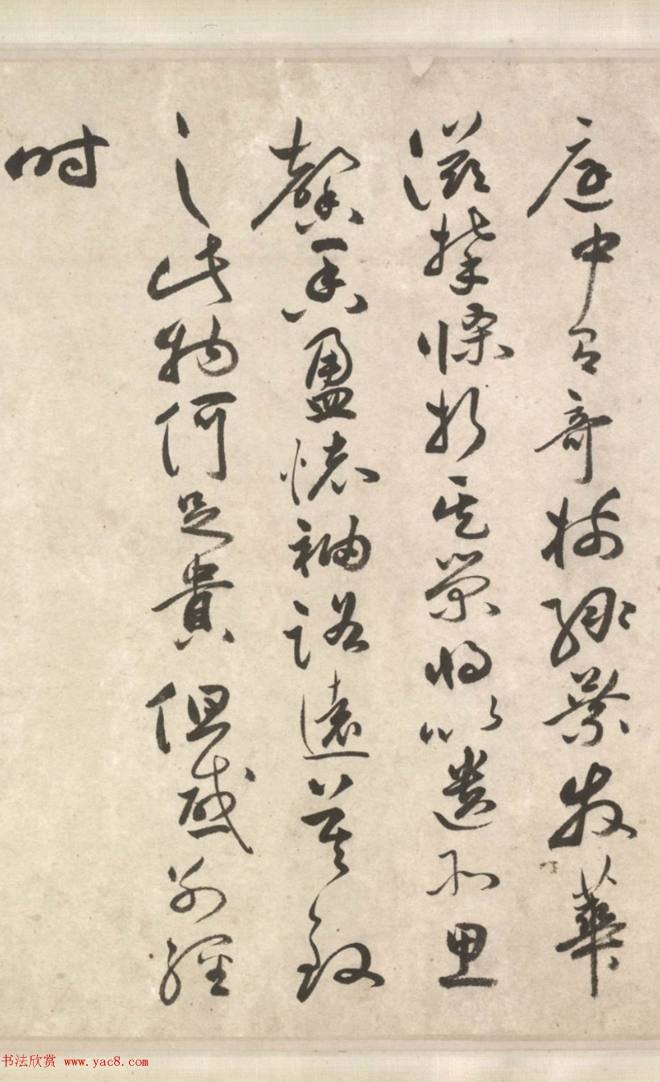 庭中有奇樹綠葉發華
滋攀條折其榮將以遺所思
馨香盈懷袖路遠莫致
之此物何足貴但感別經
時
书法欣赏 www.yac8.com